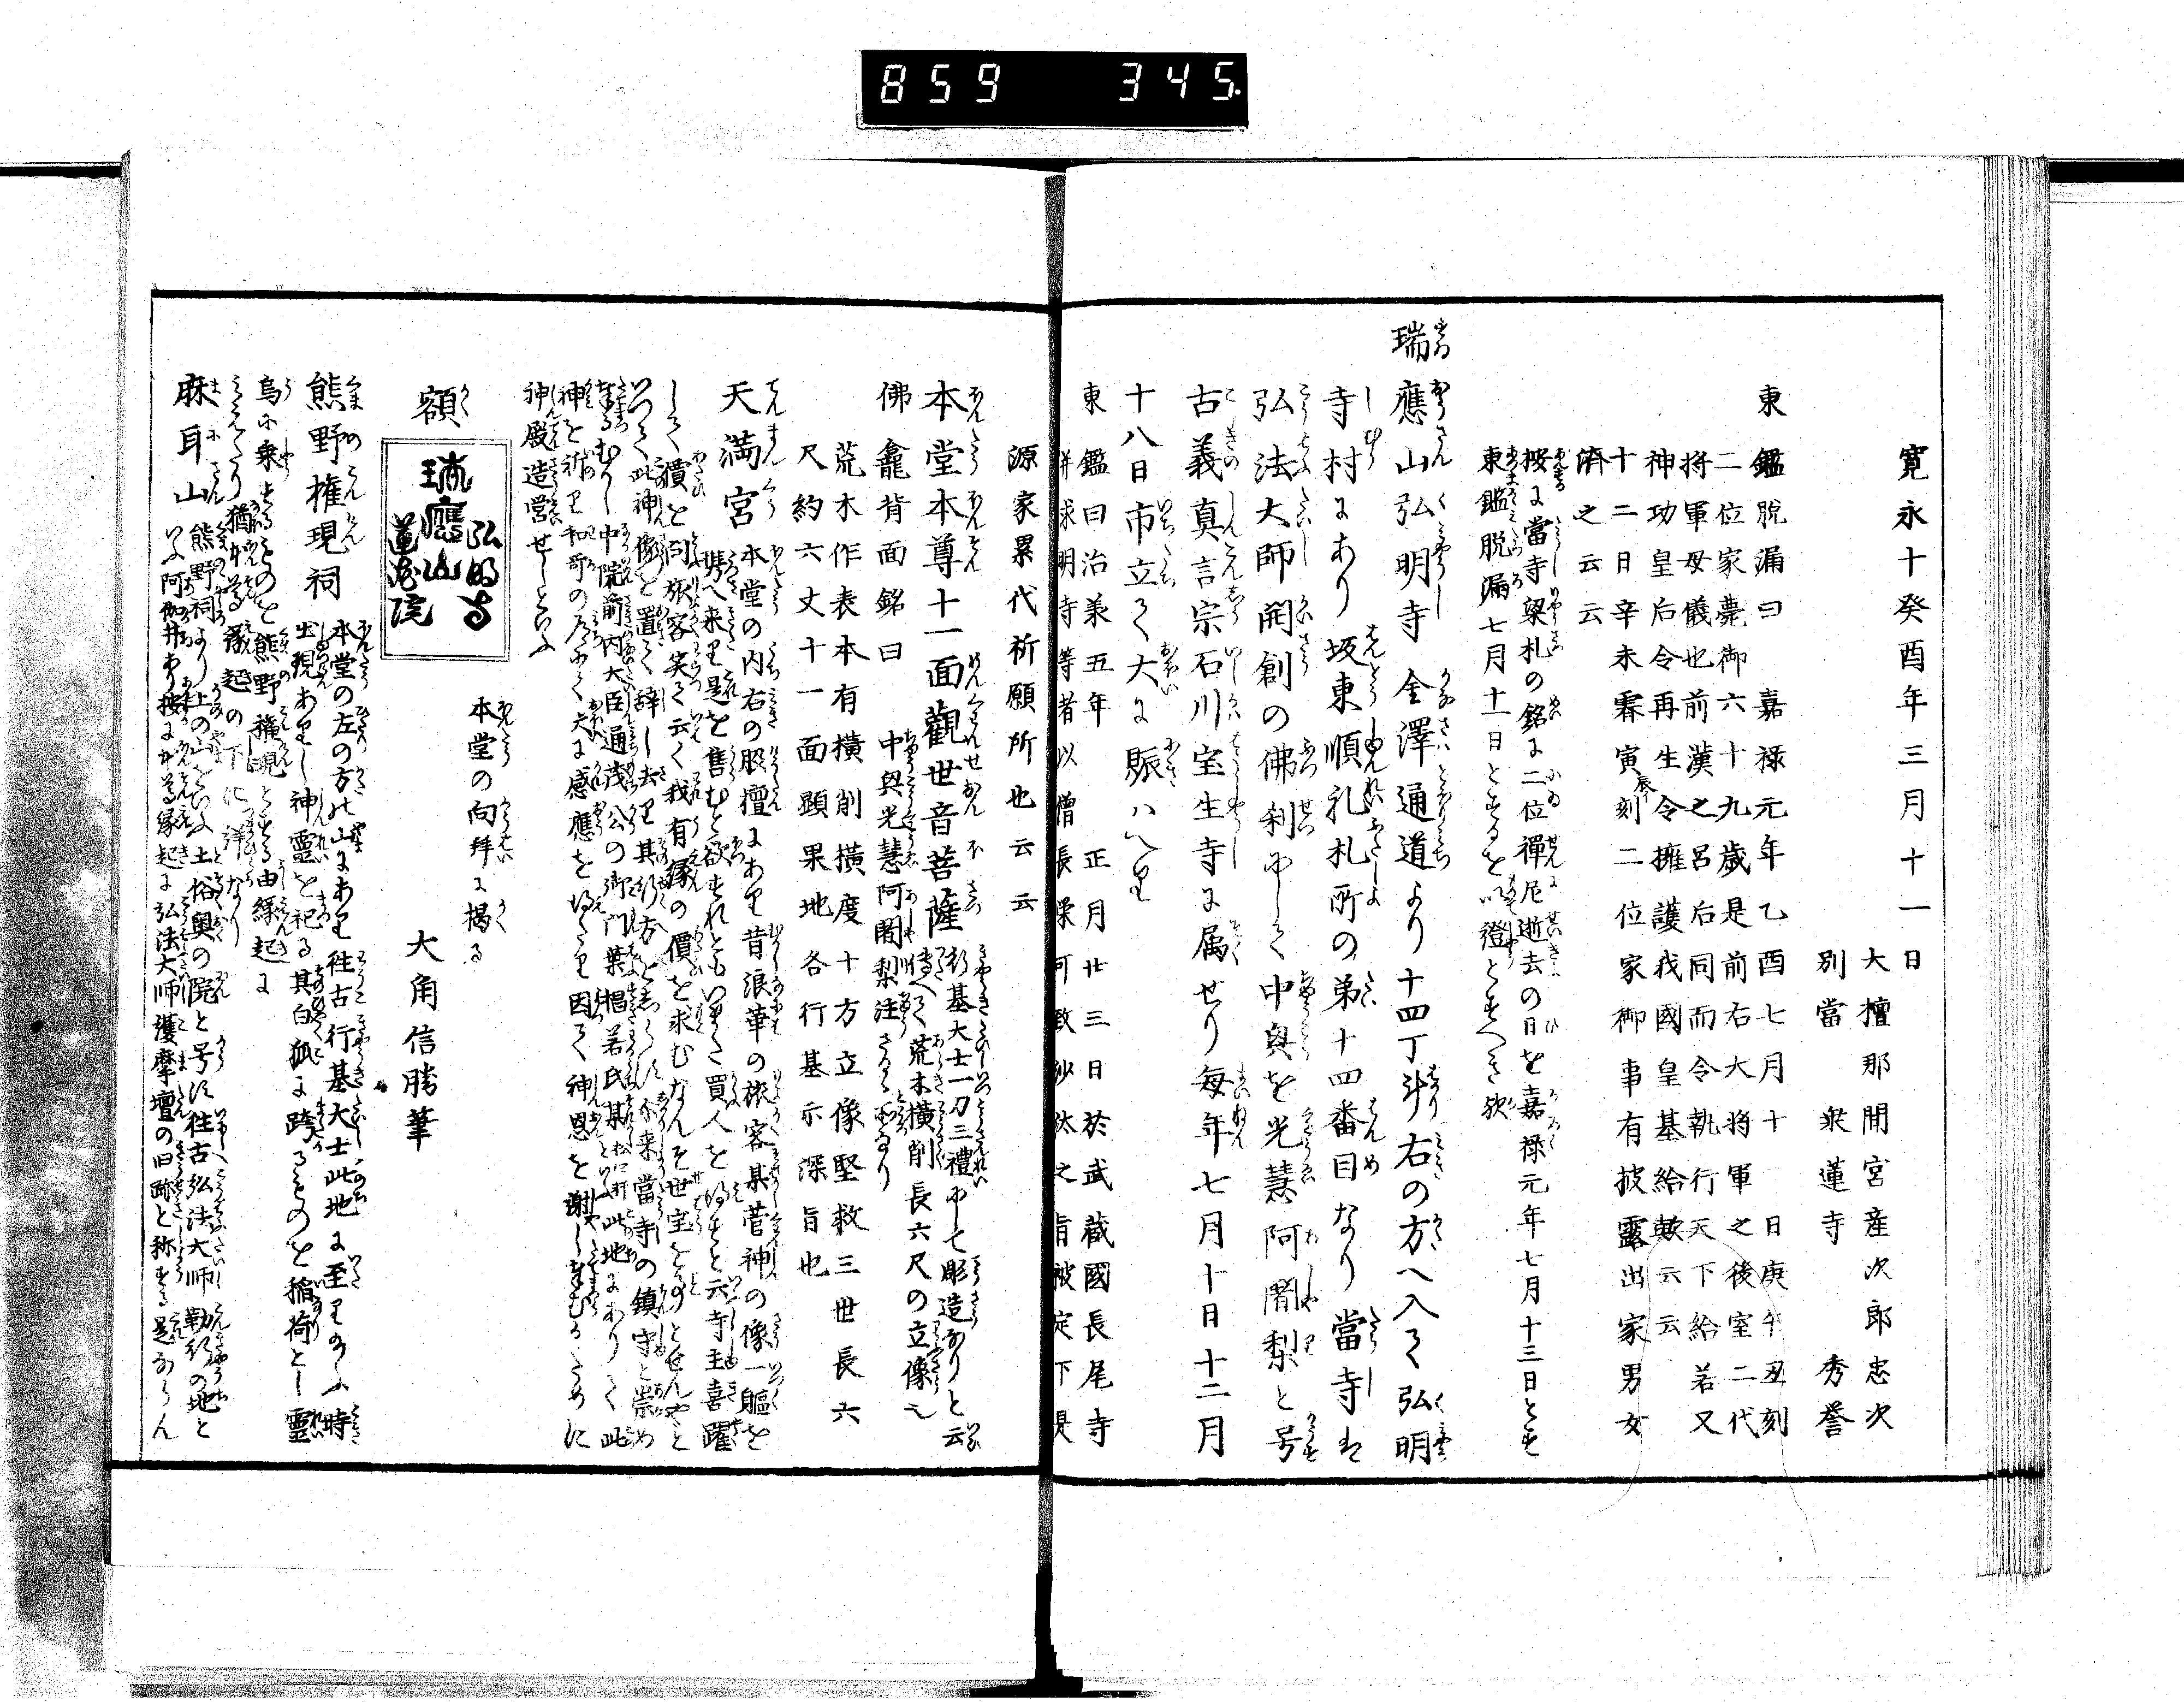 859 345.
寛永十癸酉年三月十一日
大檀那間宮産次郎忠次
別當 泉蓮寺 秀誉
東鑑脱漏曰 嘉禄元年乙酉七月十一日庚午丑刻
二位家薨御六十九歳是前右大将軍之後室二代
将軍母儀也前漢之呂后同而令執行天下給若又
神功皇后令再生令擁護我國皇基給歟云云
十二日辛未霽寅刻二位家御事有披露出家男女
濟之云云
按に當寺梁札の銘に二位禪尼逝去の日を嘉禄元年七月十三日とす
東鑑脱漏七月十一日とするを以證とすへき歟
瑞應山弘明寺 金澤通道より十四丁斗右の方へ入て弘明
寺村にあり坂東順礼札所の第十四番目なり當寺は
弘法大師開創の佛刹にして中興を光慧阿闍梨と号
古義真言宗石川宝生寺に属せり毎年七月十日十二月
十八日市立て大に賑はへり
東鑑曰治義五年 正月廿三日於武蔵國長尾寺
并求明寺等者以僧長栄可致沙汰之旨被定下是
源家累代祈願所也云云
本堂本尊十一面觀世音菩薩 行基大士一刀三禮にして彫造ありと云
傳へて荒木横削長六尺の立像也
佛龕背面銘曰 中興光慧阿闍梨注さるゝ所なり
荒木作表本有横削横度十方立像竪救三世長六
尺約六丈十一面顕果地各行基示深旨也
天満宮 本堂の内右の脇檀にあり昔浪華の旅客某菅神の像一軀を
携へ来り是を售むと欲すれともいまた買人を得すと云寺主喜躍
して價を問旅客笑て云く我有縁の價を求むなんそ世宝を
いつて此神像を置て辞し去り其行方をしらす尓来當寺の鎮守と崇め
奉るむかし中院前内大臣通茂公の御門葉楊若氏某此地にありて此
神を祈り和哥の たちまち感應を得たり因て神恩を謝し奉むかために
神殿造営せしといふ
額
瑞應山
弘明寺
蓮花院
本堂の向拜に掲る
大角信勝筆
熊野権現祠 本堂の左の方の山にあり往古行基大士此地に至りの時
出現ありし神靈を祀る其白狐に跨るものを稲荷とし靈
烏に乗するものを熊野権現とする由縁起に
みえたり 縁起の下に詳なり
麻耳山 熊野祠より上の山をいふ土俗奥の院と号に往古弘法大師勤行の地と
いふ阿伽井あり按に 縁起に弘法大師護摩壇の旧跡と称する是ならん